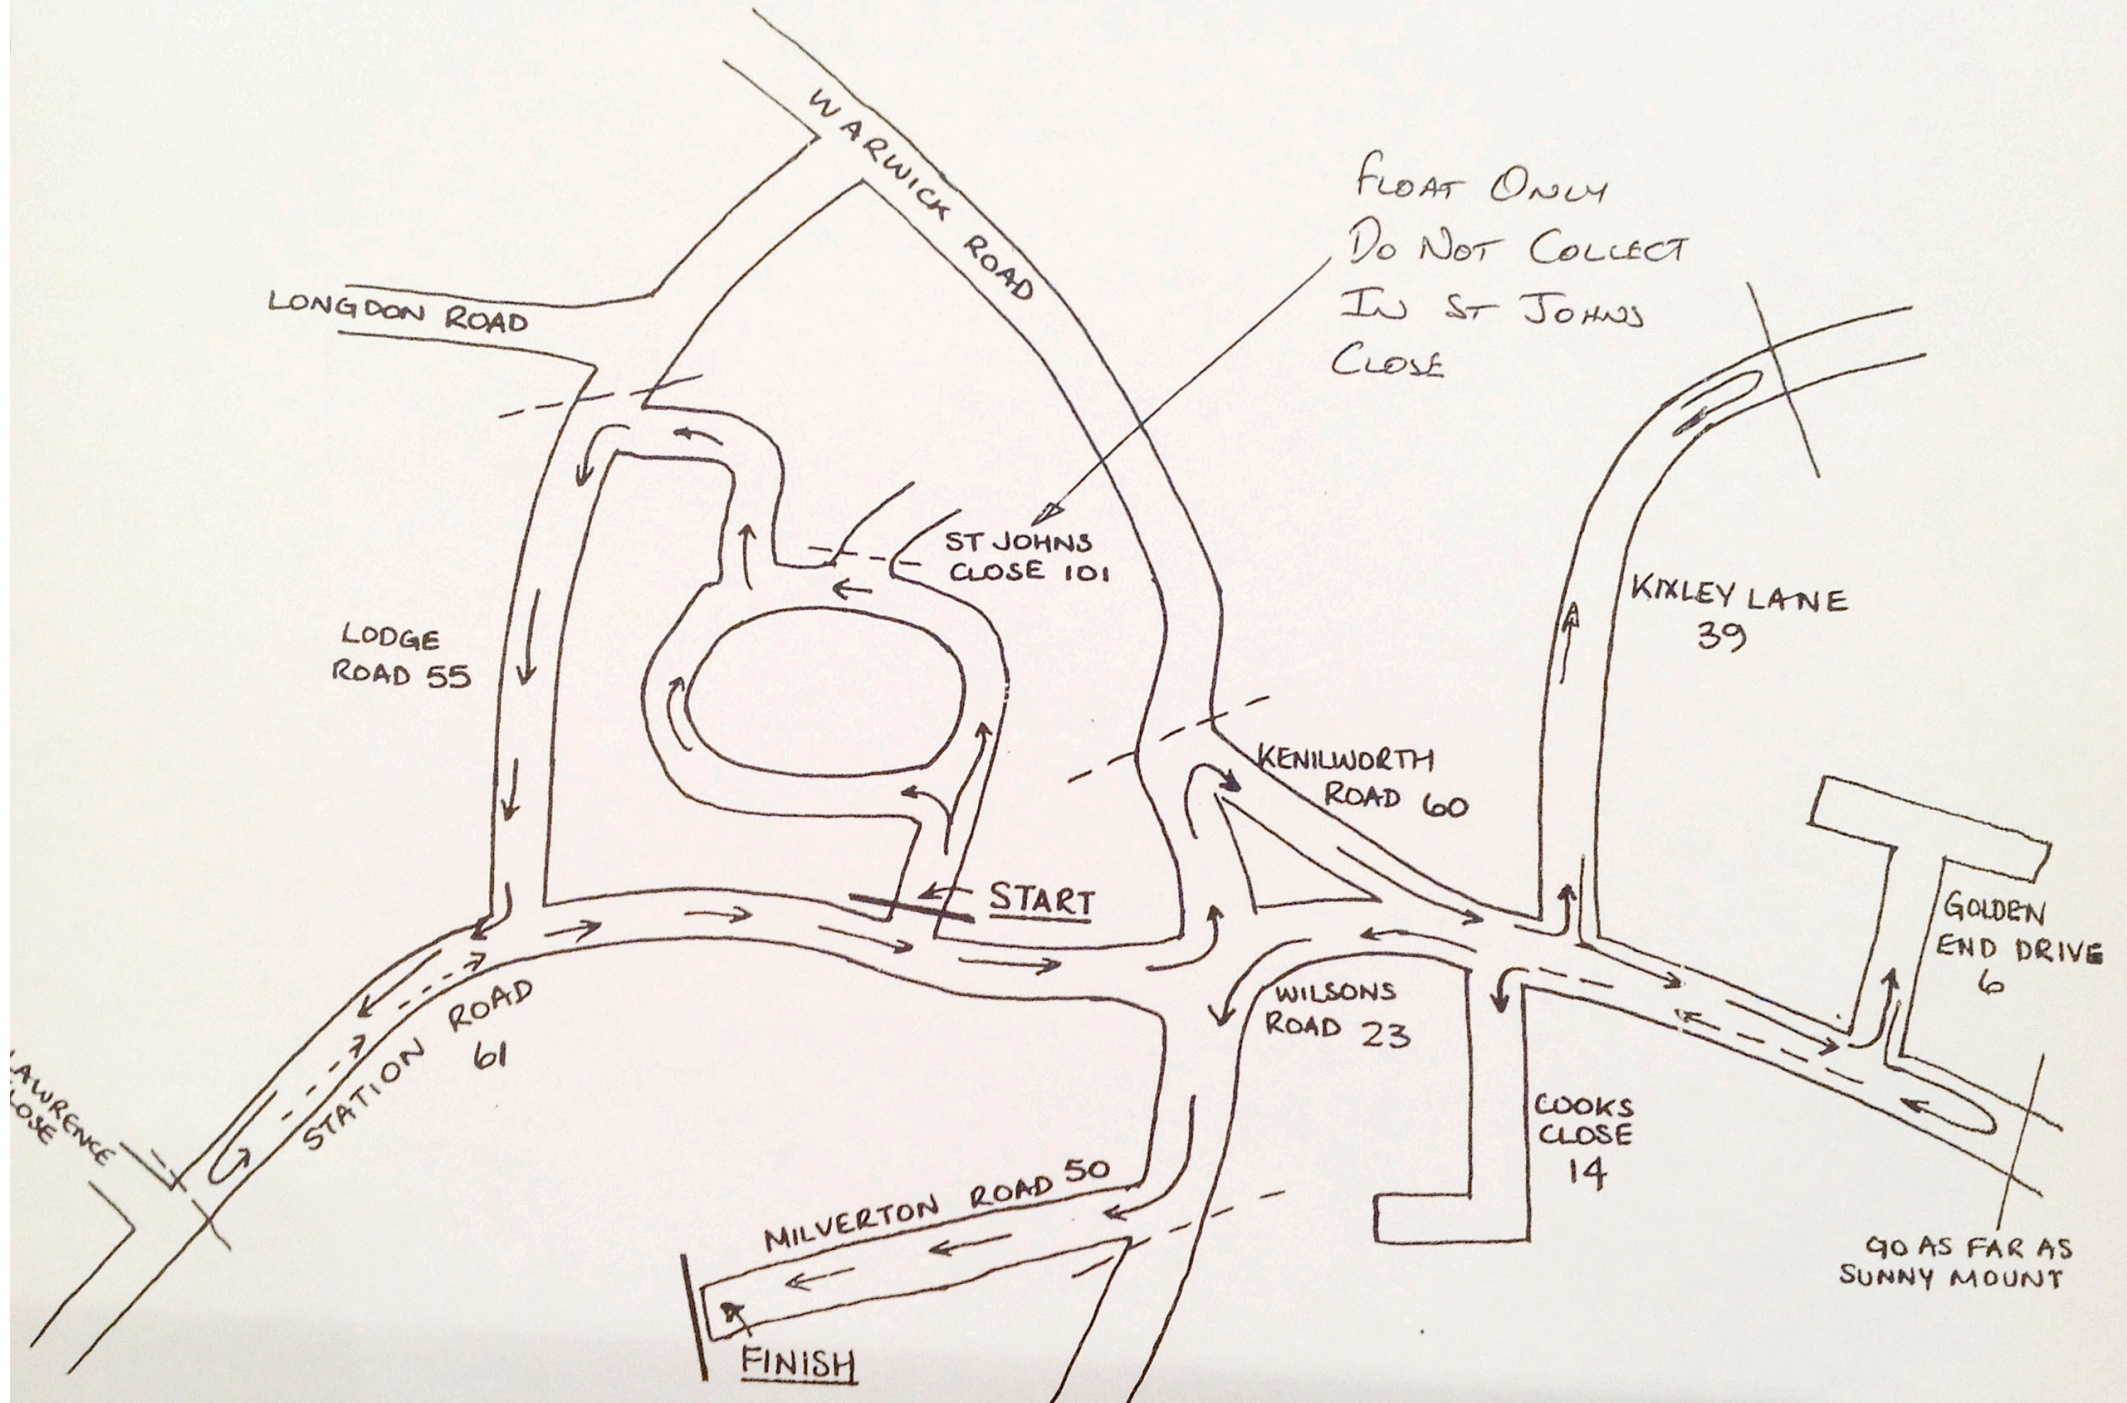 WARWICK ROAD
FLOAT ONLY
DO NOT COLLECT
IN ST JOHNS
CLOSE
LONGDON ROAD
ST JOHNS
CLOSE 101
KIXLEY LANE
39
LODGE
ROAD 55
KENILWORTH
ROAD 60
START
GOLDEN
END DRIVE
6
WILSONS
ROAD 23
STATION ROAD
61
LAWRENCE
LOSE
COOKS
CLOSE
14
MILVERTON ROAD 50
GO AS FAR AS
SUNNY MOUNT
FINISH